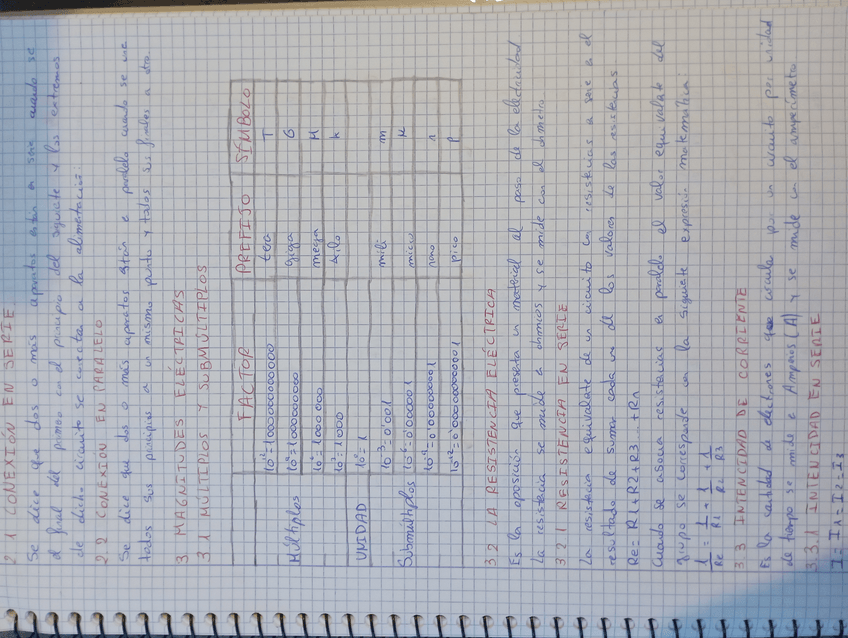 2.1 CONEXIÓN EN SERIE
Se dice que dos o más aparatos están en serie cuando se
el final del primero con el principio del siguiente y los extremos
de dicho circuito se conectan a la alimentación:
2.2 CONEXIÓN EN PARALELO
Se dice que dos o más aparatos están en paralelo cuando se une
todos sus principios a un mismo punto y todos sus finales a otro.
3 MAGNITUDES ELÉCTRICAS
3.1 MÚLTIPLOS Y SUBMÚLTIPLOS
FACTOR PREFIJO SÍMBOLO
10¹²=1000000000000 tera T
10⁹=1000000000 giga G
Múltiplos 10⁶=1000000 mega M
10³=1000 kilo k
UNIDAD 10⁰=1
10⁻³=0'001 mili m
Submúltiplos 10⁻⁶=0'000001 micro μ
nano n
10⁻¹²=0'000000000001 pico p
3.2 LA RESISTENCIA ELÉCTRICA
Es la oposición que presenta un material al paso de la electricidad
La resistencia se mide en ohmios y se mide con el ohmetro
3.2.1 RESISTENCIA EN SERIE
La resistencia equivalente de un circuito con resistencias en serie es el
resultado de sumar cada uno de los valores de las resistencias
Re= R1+R2+R3...+Rn
Cuando se asocia resistencias en paralelo el valor equivalente del
grupo se corresponde con la siguiente expresión matemática:
1/Re = 1/R1 + 1/R2 + 1/R3
3.3 INTENCIDAD DE CORRIENTE
Es la cantidad de electrones que circula por un circuito por unidad
de tiempo se mide en Amperios (A) y se mide con el amperímetro
3.3.1 INTENCIDAD EN SERIE
I = I1 = I2 = I3